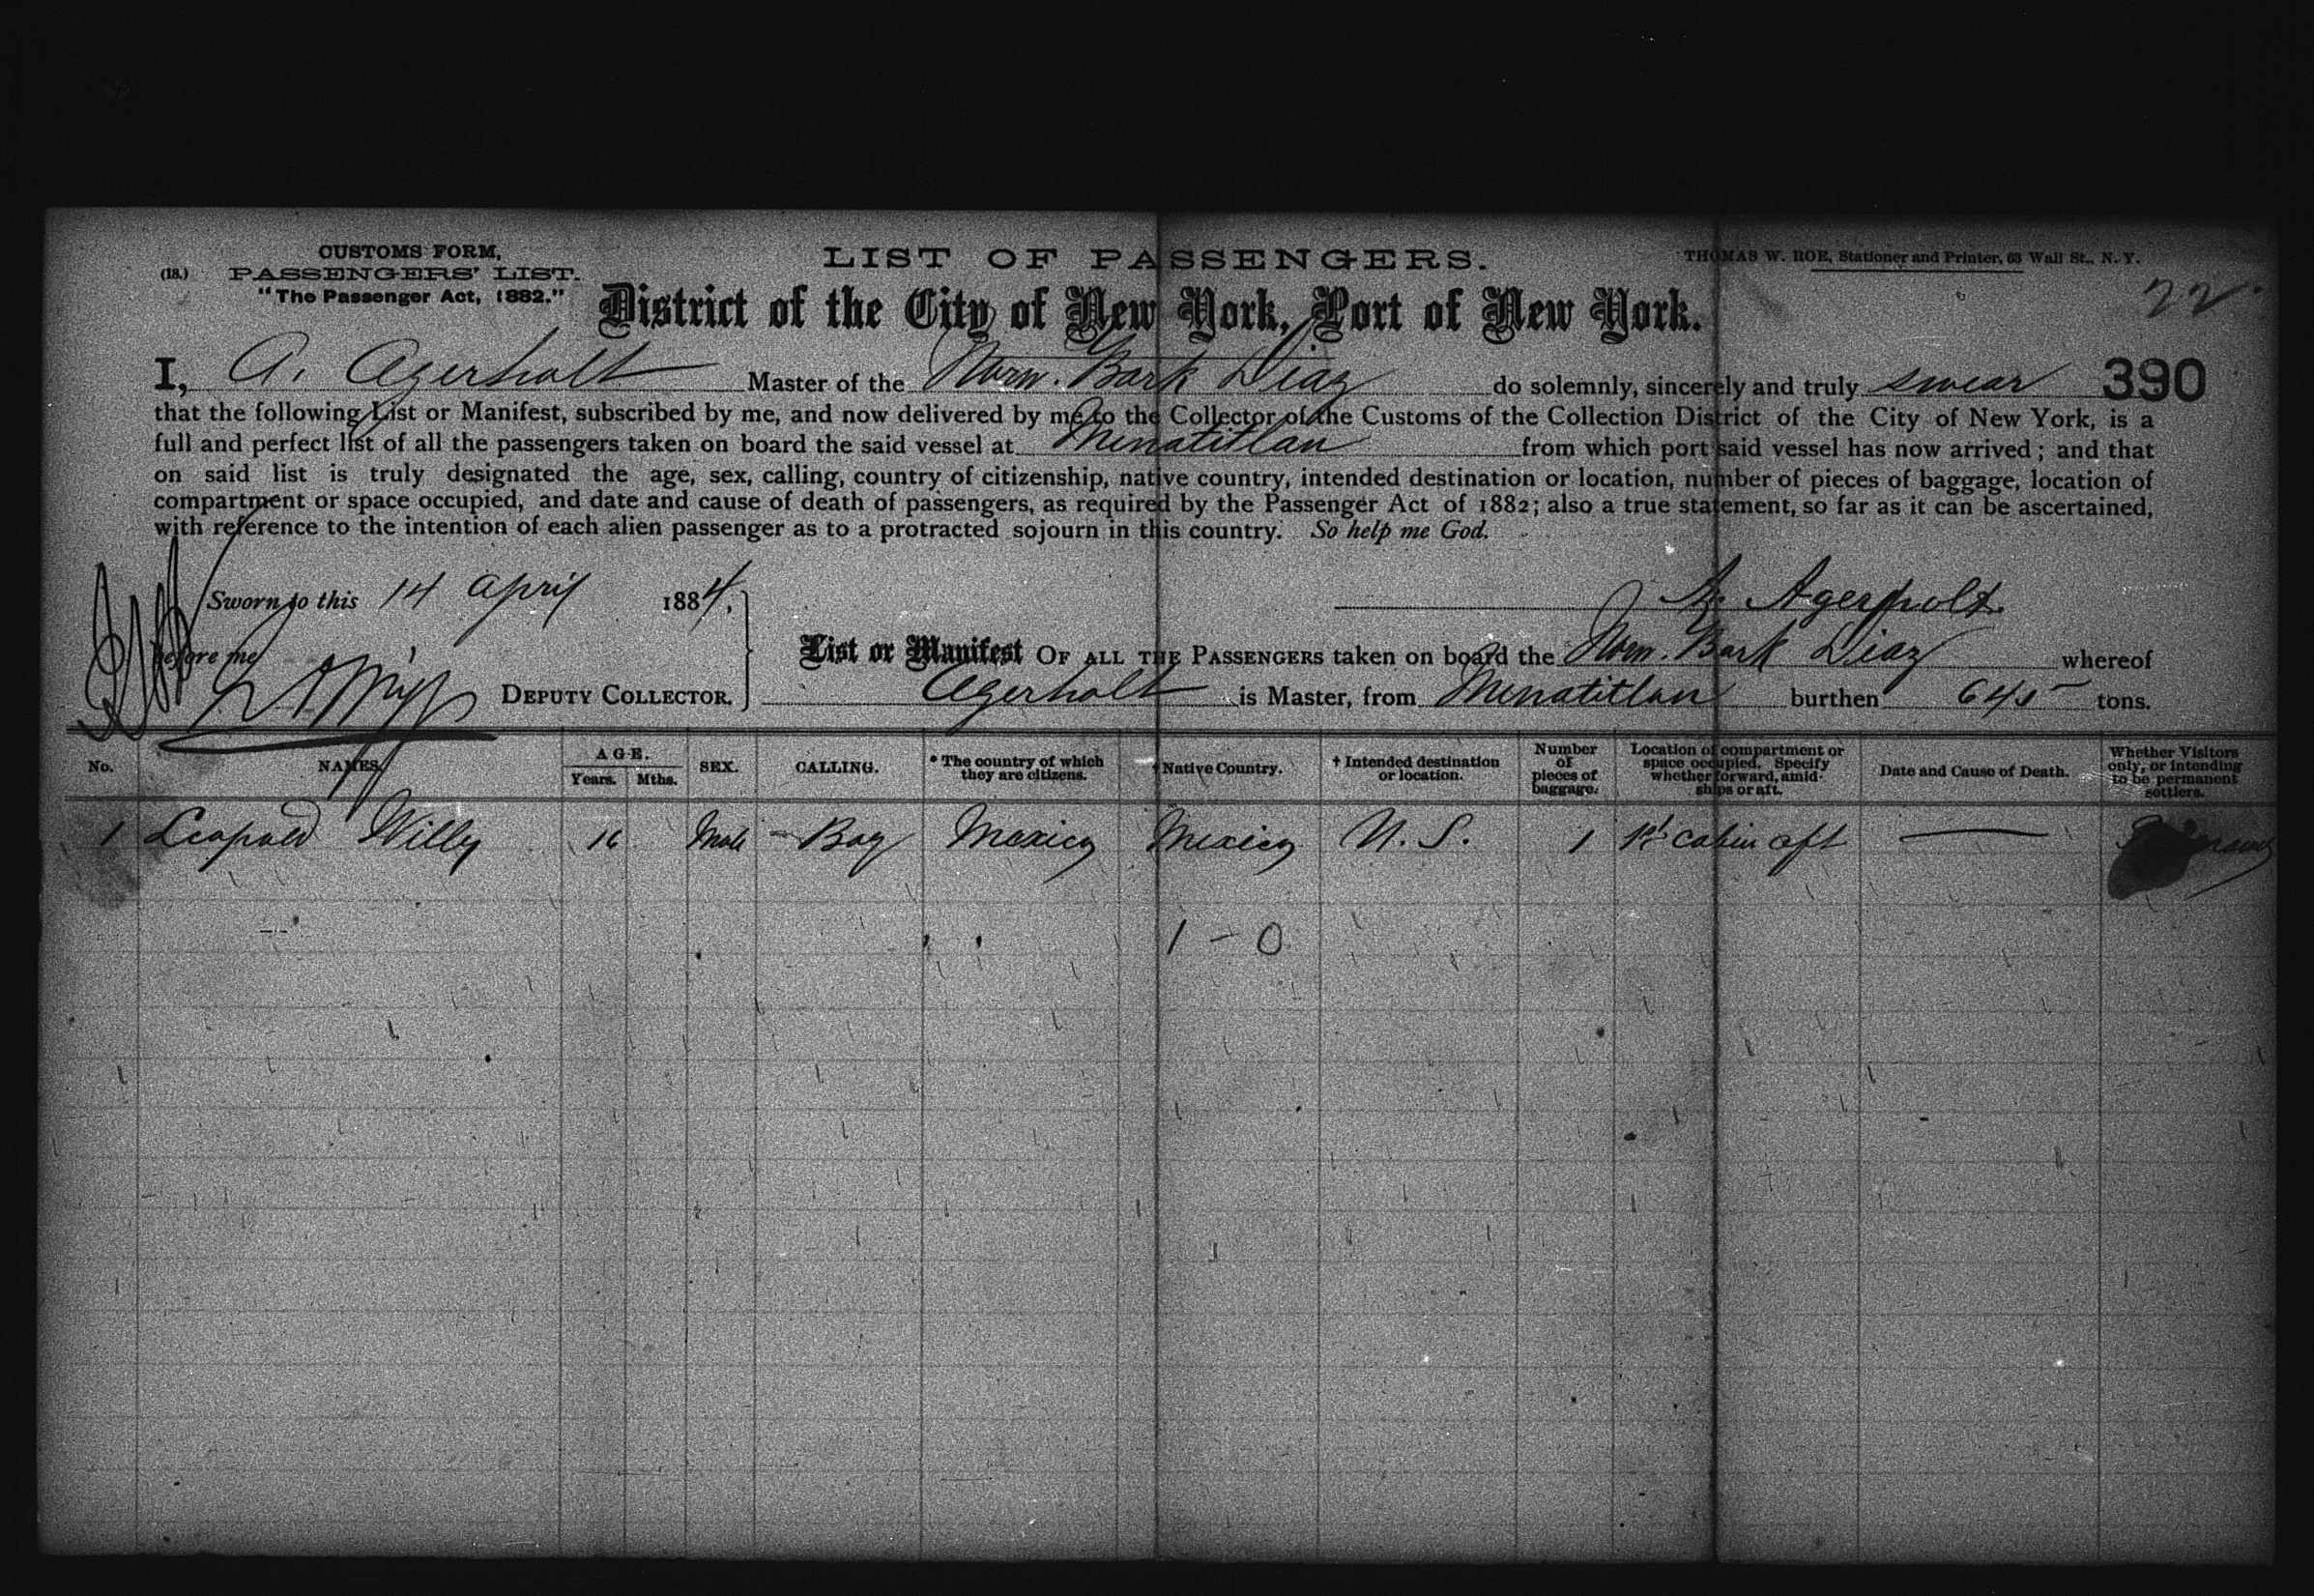 CUSTOMS FORM,
(18.) PASSENGERS' LIST.
"The Passenger Act, 1882."
LIST OF PASSENGERS.
THOMAS W. ROE, Stationer and Printer, 63 Wall St., N. Y.
22
District of the City of New York, Port of New York.
I, A. Agerholt Master of the Norw. Bark Diaz do solemnly, sincerely and truly swear 390
that the following List or Manifest, subscribed by me, and now delivered by me to the Collector of the Customs of the Collection District of the City of New York, is a
full and perfect list of all the passengers taken on board the said vessel at Minatitlan from which port said vessel has now arrived; and that
on said list is truly designated the age, sex, calling, country of citizenship, native country, intended destination or location, number of pieces of baggage, location of
compartment or space occupied, and date and cause of death of passengers, as required by the Passenger Act of 1882; also a true statement, so far as it can be ascertained,
with reference to the intention of each alien passenger as to a protracted sojourn in this country. So help me God.
Sworn to this 14 April 1884,
A. Agerholt.
before me
DEPUTY COLLECTOR.
List or Manifest OF ALL THE PASSENGERS taken on board the Norw. Bark Diaz whereof
Agerholt is Master, from Minatitlan burthen 645 tons.
No. NAMES. AGE. Years. Mths. SEX. CALLING. * The country of which they are citizens. † Native Country. † Intended destination or location. Number of pieces of baggage. Location of compartment or space occupied. Specify whether forward, amidships or aft. Date and Cause of Death. Whether Visitors only, or intending to be permanent settlers.
1 Leopold Willy 16 Male - Boy Mexico Mexico U. S. 1 1st cabin aft —
1 - 0